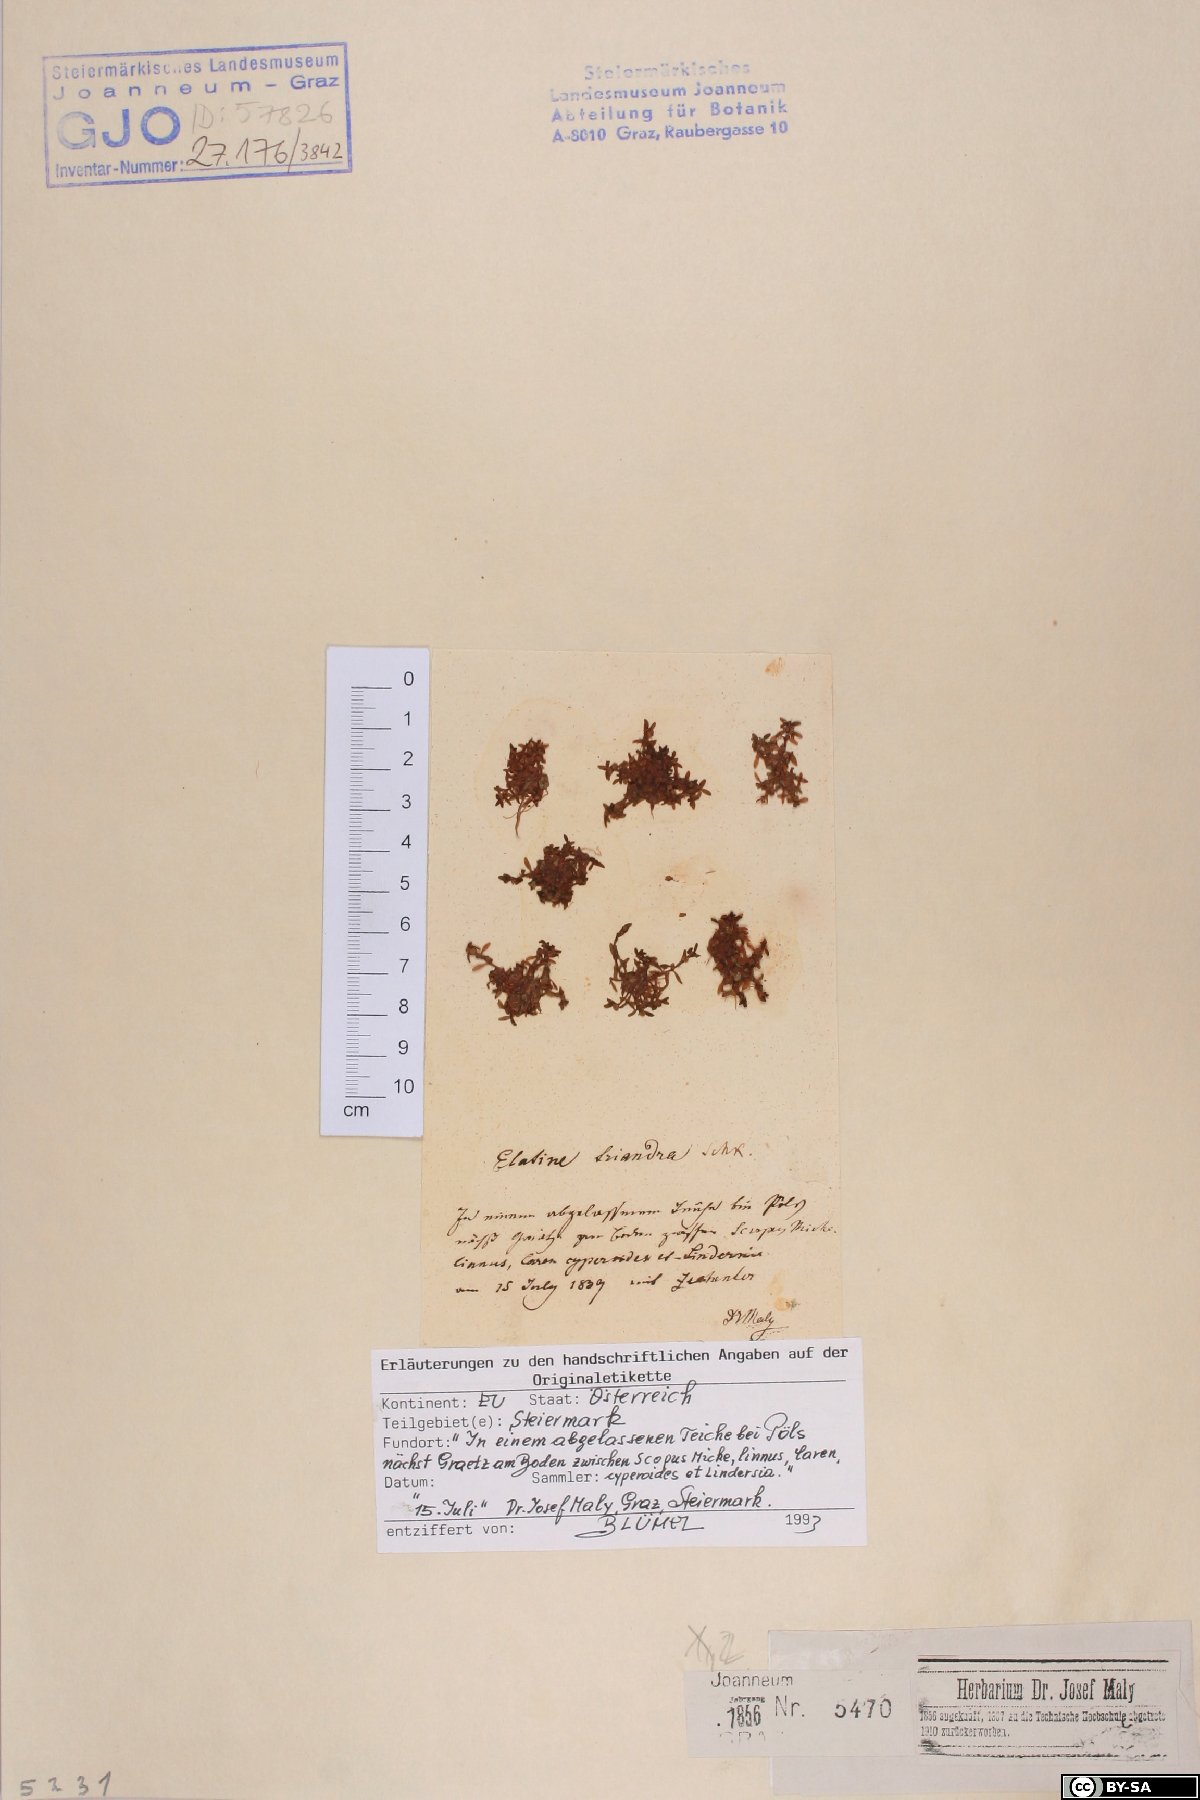 Steiermärkisches Landesmuseum
Joanneum - Graz
GJO ID: 57826
Inventar-Nummer: 27.176/3842
Steiermärkisches
Landesmuseum Joanneum
Abteilung für Botanik
A-8010 Graz, Raubergasse 10
0
1
2
3
4
5
6
7
8
9
10
cm
Elatine triandra Schk.
In einem abgelassenen Teiche bei Pöls
nächst Graetz am Boden zwischen Scirpus Miche-
linnus, Carex cyperoides et Lindernia
am 15 July 1839 mit
Dr Maly
Erläuterungen zu den handschriftlichen Angaben auf der
Originaletikette
Kontinent: EU Staat: Österreich
Teilgebiet(e): Steiermark
Fundort: "In einem abgelassenen Teiche bei Pöls
nächst Graetz am Boden zwischen Scopus Miche, linnus, Caren,
Datum: Sammler: cyperoides et Lindersia."
"15. Juli" Dr. Josef Maly, Graz, Steiermark.
entziffert von: BLÜMEL 1993
Joanneum
Jahrgang
1856 Nr. 5470
Herbarium Dr. Josef Maly
1856 angekauft, 1887 an die Technische Hochschule abgetreten
1910 zurückerworben.
5231
cc BY-SA